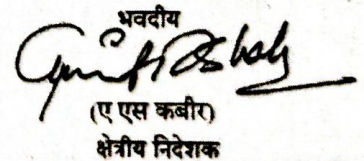 भवदीय
(ए एस कबीर)
क्षेत्रीय निदेशक